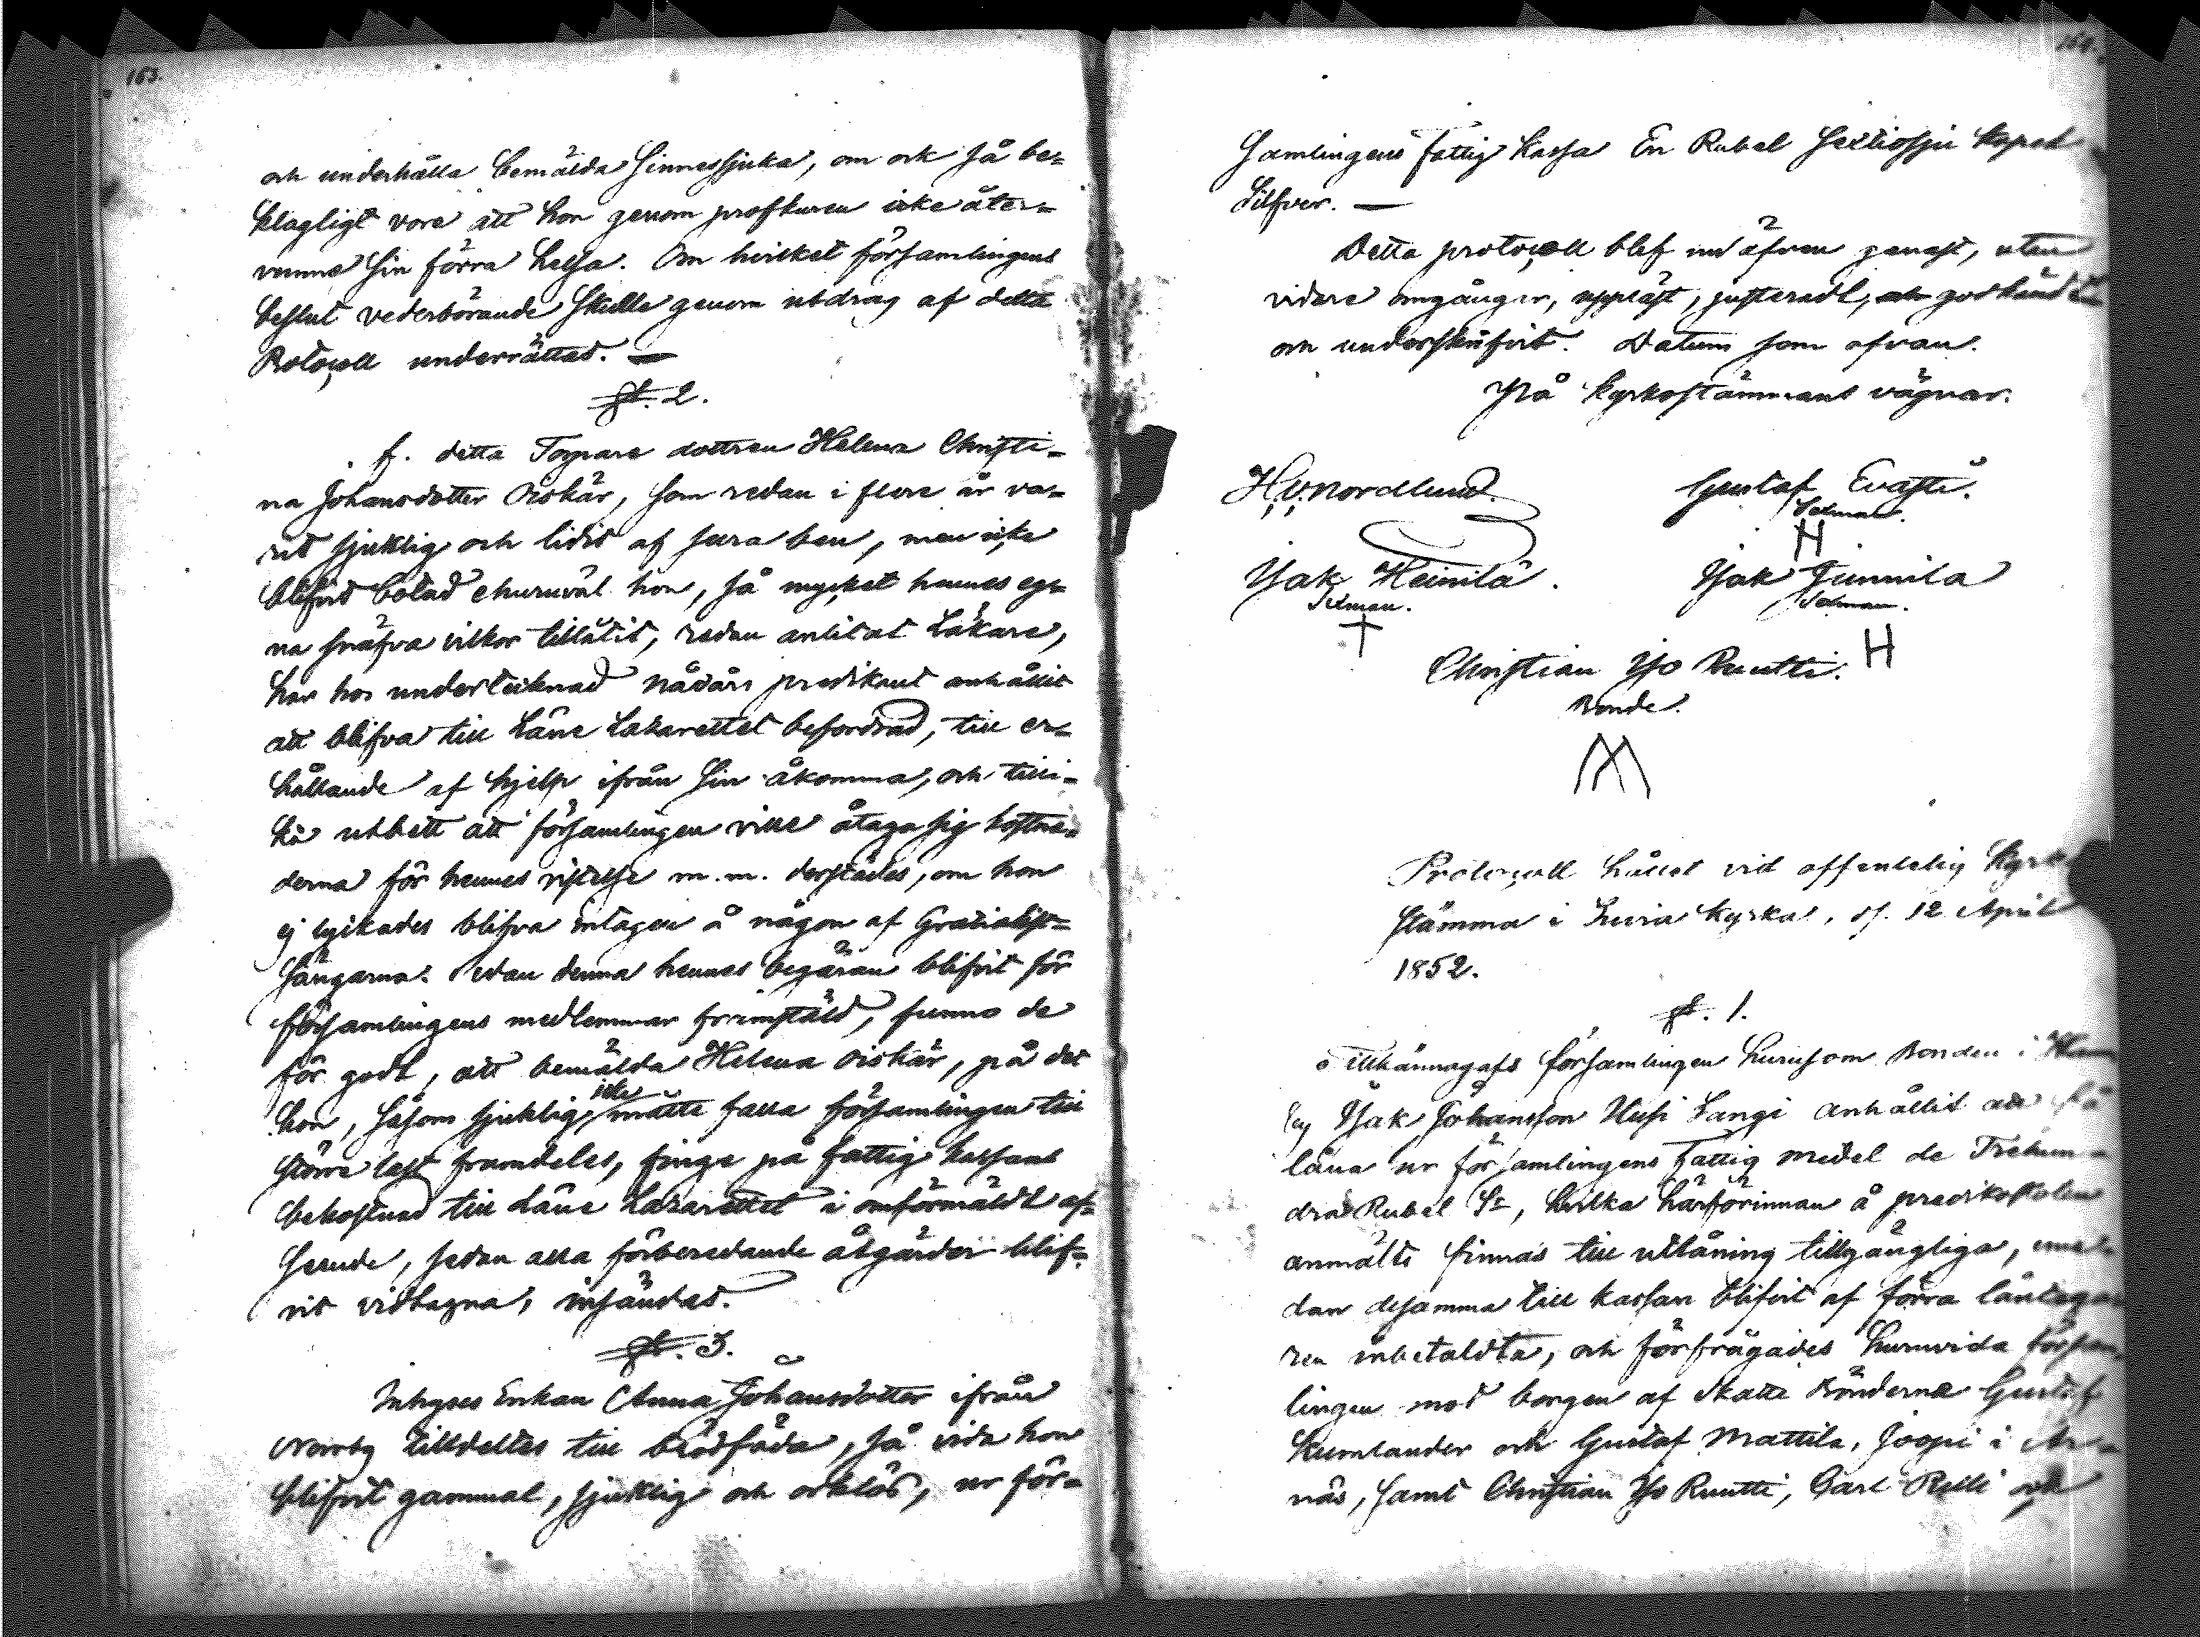 163.
och underhålla bemälda Sinnessjuka, om ock så be-
klagligt vore att hon genom profkuren icke åter-
vunne sin förra helsa. Om hvilket församlingens
beslut vederbörande skulle genom utdrag af detta
Protocoll underrättas. —
§. 2.
f. detta Torpare dottren Helena Christi-
na Johansdotter Oiskär, som redan i flere år va-
rit sjuklig och lidit af sura ben, men icke
blifvit botad ehuruväl hon, så mycket hennes eg-
na snäfva vilkor tillåtit, redan anlitat Läkare,
har hos undertecknad nådårs predikant anhållit
att blifva till Läne Lazarettet befordrad, till er-
hållande af hjelp ifrån sin åkomma, och tilli-
ka utbett att församlingen ville åtaga sig kostna-
derna för hennes vistelse m.m. derstädes, om hon
ej lyckades blifva intagen å någon af Gratialist-
sängarna. Sedan denna hennes begäran blifvit för
församlingens medlemmar framstäld, funno de
för godt, att bemälda Helena Oiskär, på det
hon, såsom sjuklig, icke måtte falla församlingen till
större last framdeles, finge på fattig kassans
bekostnad till Läne Lazarettet i omförmäldt af-
seende, sedan alla förberedande åtgärder blif-
vit vidtagna, insändas.
§. 3.
Inhyses Enkan Anna Johansdotter ifrån
Norrby tilldeltes till brödföda, så vida hon
blifvit gammal, sjuklig och orklös, ur för-
164.
Samlingens fattig Kassa En Rubel Sextiosju kopek
Silfver. —
Detta protocoll blef nu äfven genast, utan
vidare omgångar, uppläst, justeradt, och godkändt
om underskrifvit. Datum som ofvan.
På Kyrkostämmans vägnar.
Hv. Nordlund. Gustaf Evasti.
Sexman.
H
Isak Heinilä. Isak Junnila
Sexman. Sexman.
Christian Iso Ruutti. H
Bonde.
Protocoll hållet vid offentelig Kyrk
stämma i Luvia kyrka, d. 12 April
1852.
§. 1.
Tillkännagafs församlingen hurusom Bonden i
by Isak Johansson Uusi Langi anhållit att få
låna ur församlingens Fattig medel de Trehun-
dra Rubel Sr, hvilka härförinnan å predikostolen
anmälts finnas till utlåning tillgängliga,
dan desamma till kassan blifvit af förra låntaga
ren inbetaldta, och förfrågades huruvida försam
lingen mot borgen af Skatte Bönderne Gustaf
Kumlander och Gustaf Mattila, Joopi i
näs, samt Christian Iso Ruutti, Carl Relli och